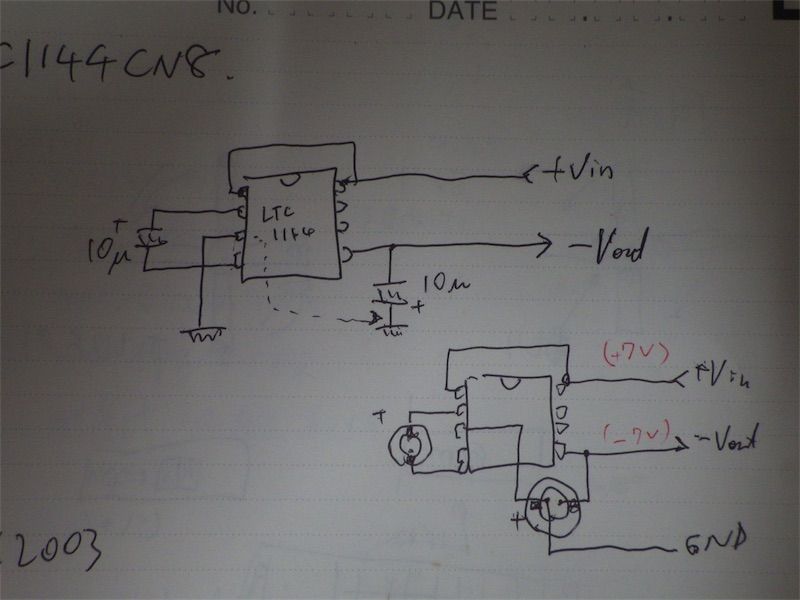 No. DATE
C1144CN8.
+Vin
LTC
1144
+
10μ
-Vout
10μ
+
(+7V)
+Vin
+
(-7V)
-Vout
+
GND
2003